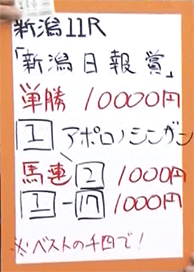 新潟11R
「新潟日報賞」
単勝 10000円
1 アポロノシンザン
馬連 2 1000円
1-17 1000円
※ベストの千四で!